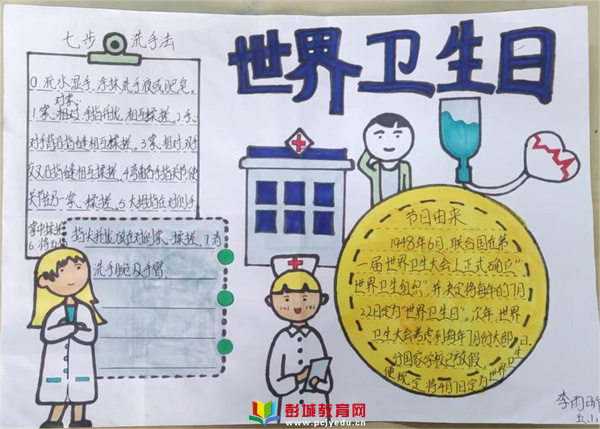 世界卫生日
七步洗手法
0.流水湿手,涂抹洗手液或肥皂。
1.掌心相对,手指并拢,相互揉搓。2.手心
对手背沿指缝相互揉搓。3.掌心相对,双手
交叉沿指缝相互揉搓。4.弯曲各手指关节使
关节在另一掌心揉搓。5.大拇指在对侧手
掌中揉搓
指尖并拢放在对侧掌心揉搓。7.为
洗手腕及手臂。
节日由来
1948年6月,联合国在第
一届世界卫生大会上正式确立"
世界卫生组织",并决定将每年的7月
22日定为"世界卫生日"。次年,世界
卫生大会考虑到每年7月的大部
分国家学校已放假,
便规定将4月7日定为世界卫生
日。
李雨昕
五.
彭城教育网
www.pcjyedu.cn